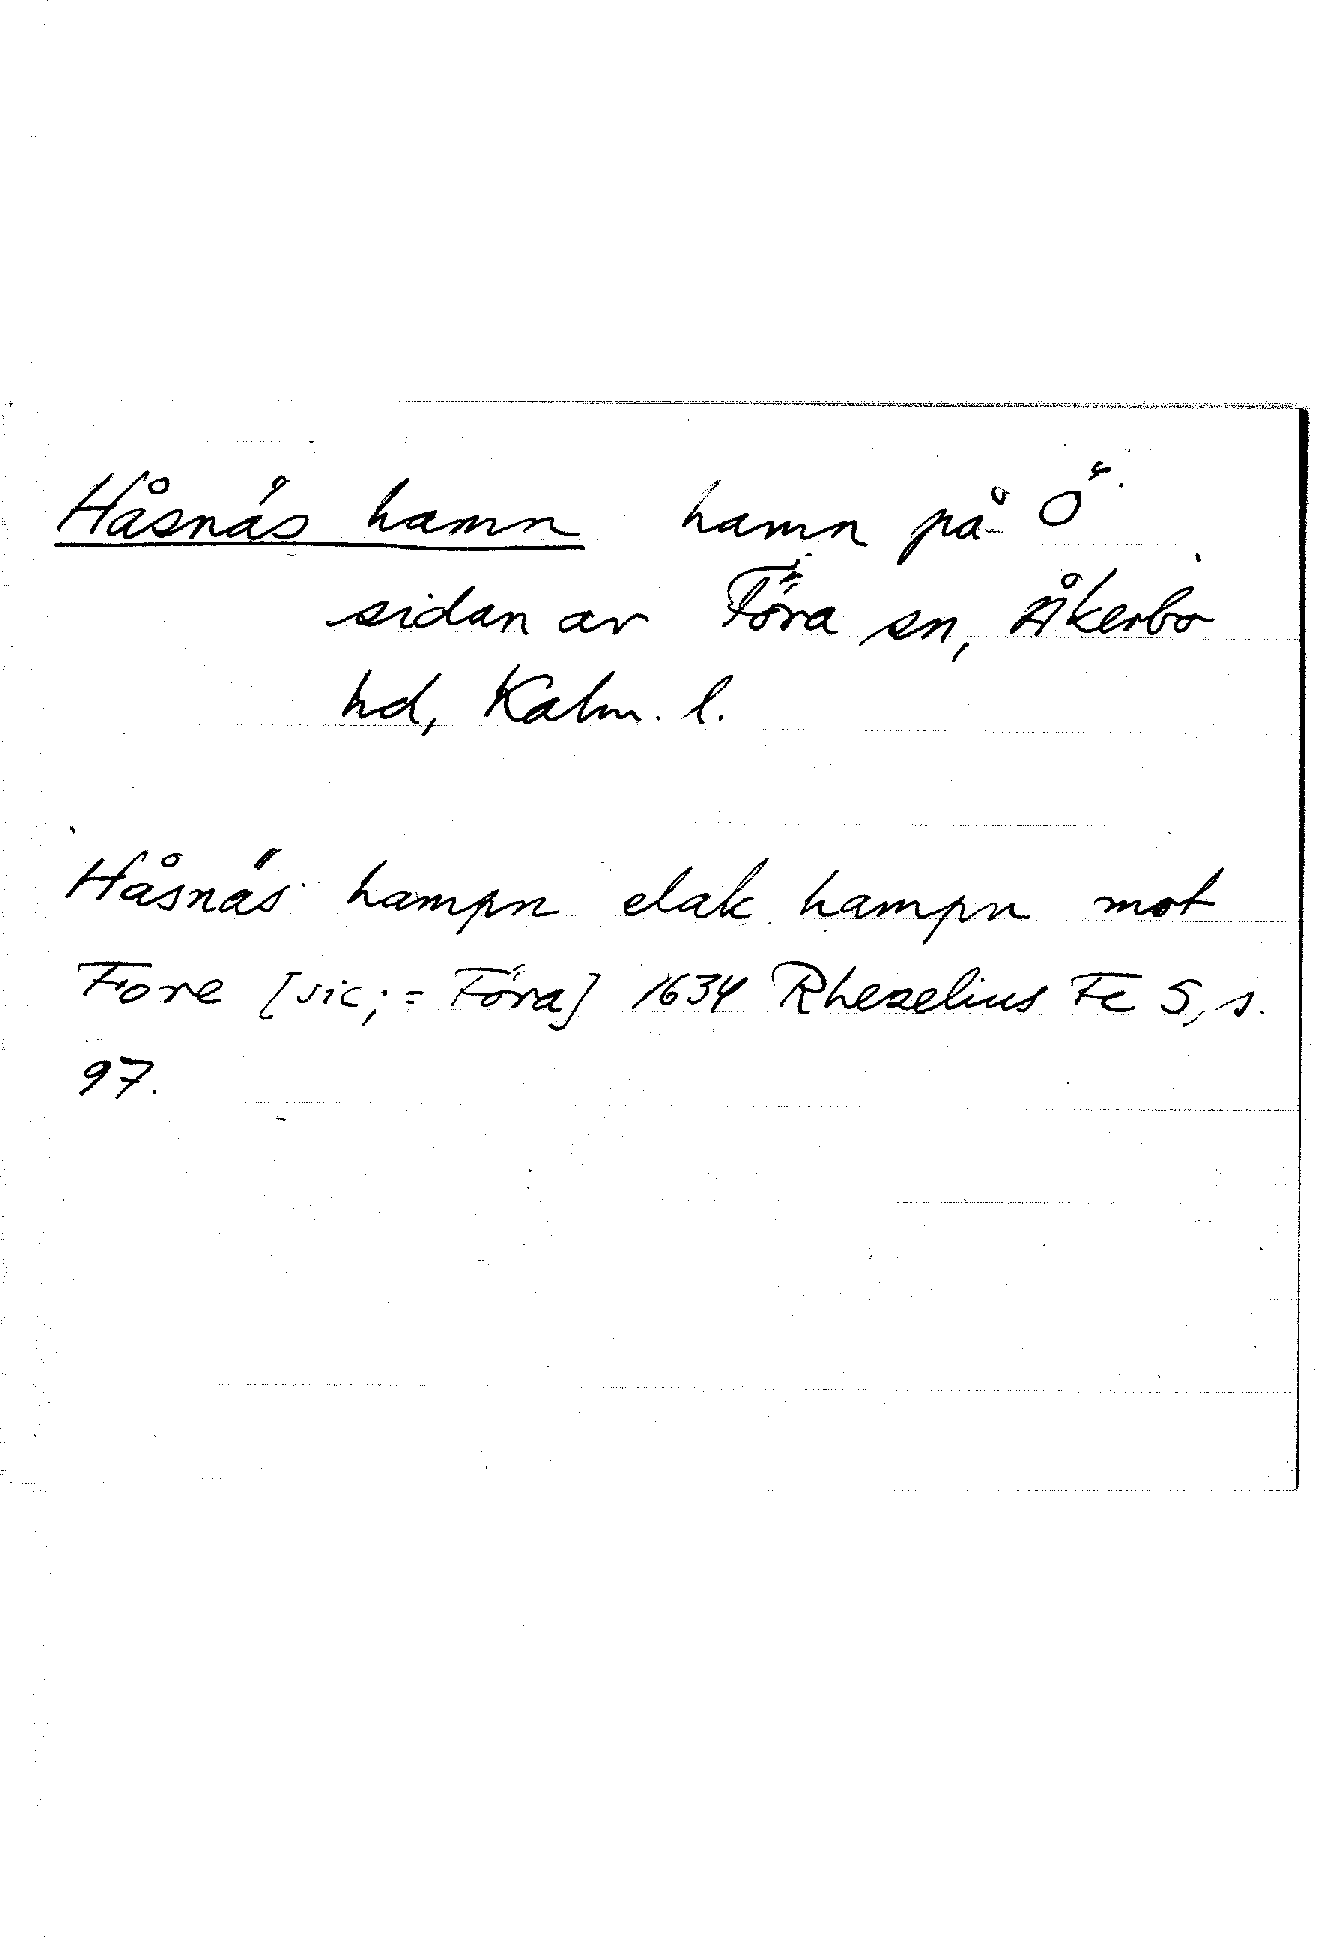 Håsnäs hamn hamn på Ö
sidan av Föra sn, Åkerbo
hd, Kalm. l.
Håsnäs hampn elak hampn mot
Fore [sic; = Föra] 1634 Rhezelius Fc 5, s.
97.